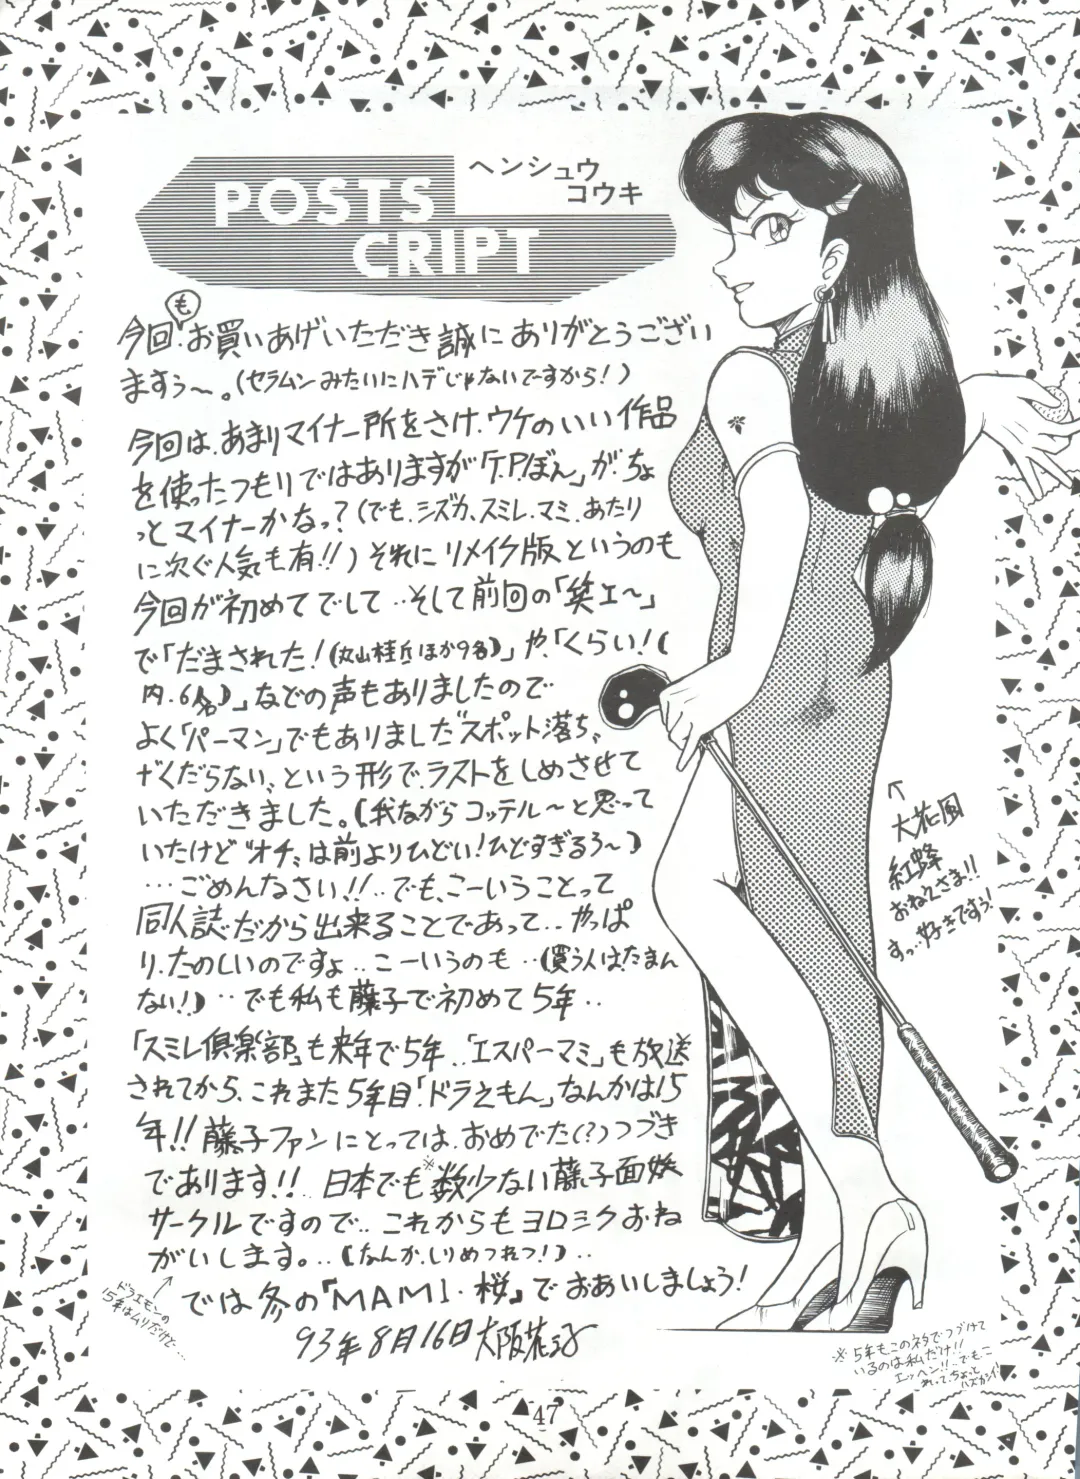 POSTS
CRIPT
ヘンシュウ
コウキ
今回もお買いあげいただき誠にありがとうござい
ますぅ〜。(セラムンみたいにハデじゃないですから!)
今回は、あまりマイナー所をさけ、ウケのいい作品
を使ったつもりではありますが「T.Pぼん」がちょ
っとマイナーかなっ?(でも、シズカ、スミレ、マミ、あたり
に次ぐ人気も有!!)それにリメイク版というのも
今回が初めてでして‥そして前回の「笑ェ〜」
で「だまされた!(丸山桂丘ほか9名)」や、「くらい!(
内、6名)」などの声もありましたので
よく「パーマン」でもありました"スポット落ち"
"くだらない"という形で、ラストをしめさせて
いただきました。(我ながらコッテル〜と思って
いたけど"オチ"は前よりひどい!ひどすぎるぅ〜)
…ごめんなさい!!‥でも、こーいうことって
同人誌だから出来ることであって‥やっぱ
り、たのしいのですょ‥こーいうのも‥(買う人はたまん
ない!)‥でも私も藤子で初めて5年‥
「スミレ倶楽部」も来年で5年‥「エスパーマミ」も放送
されてから、これまた5年目「ドラえもん」なんかは15
年!!藤子ファンにとっては、おめでた(?)つづき
であります!!‥日本でも※数少ない藤子
サークルですので‥これからもヨロシクおね
がいします。‥(なんか、しりめつれつ!)‥
では冬の「MAMI・桜」でおあいしましょう!
93年8月16日 大阪花子
ドラエモンの
15年はムリだけど…
↑
大花風
紅蜂
おねえさま!!
すっ‥好きですぅ!
※5年もこのネタでつづけて
いるのは私だけ!!
エッヘン!!‥でもこ
れって、ちょっと
ハズカシイ
47